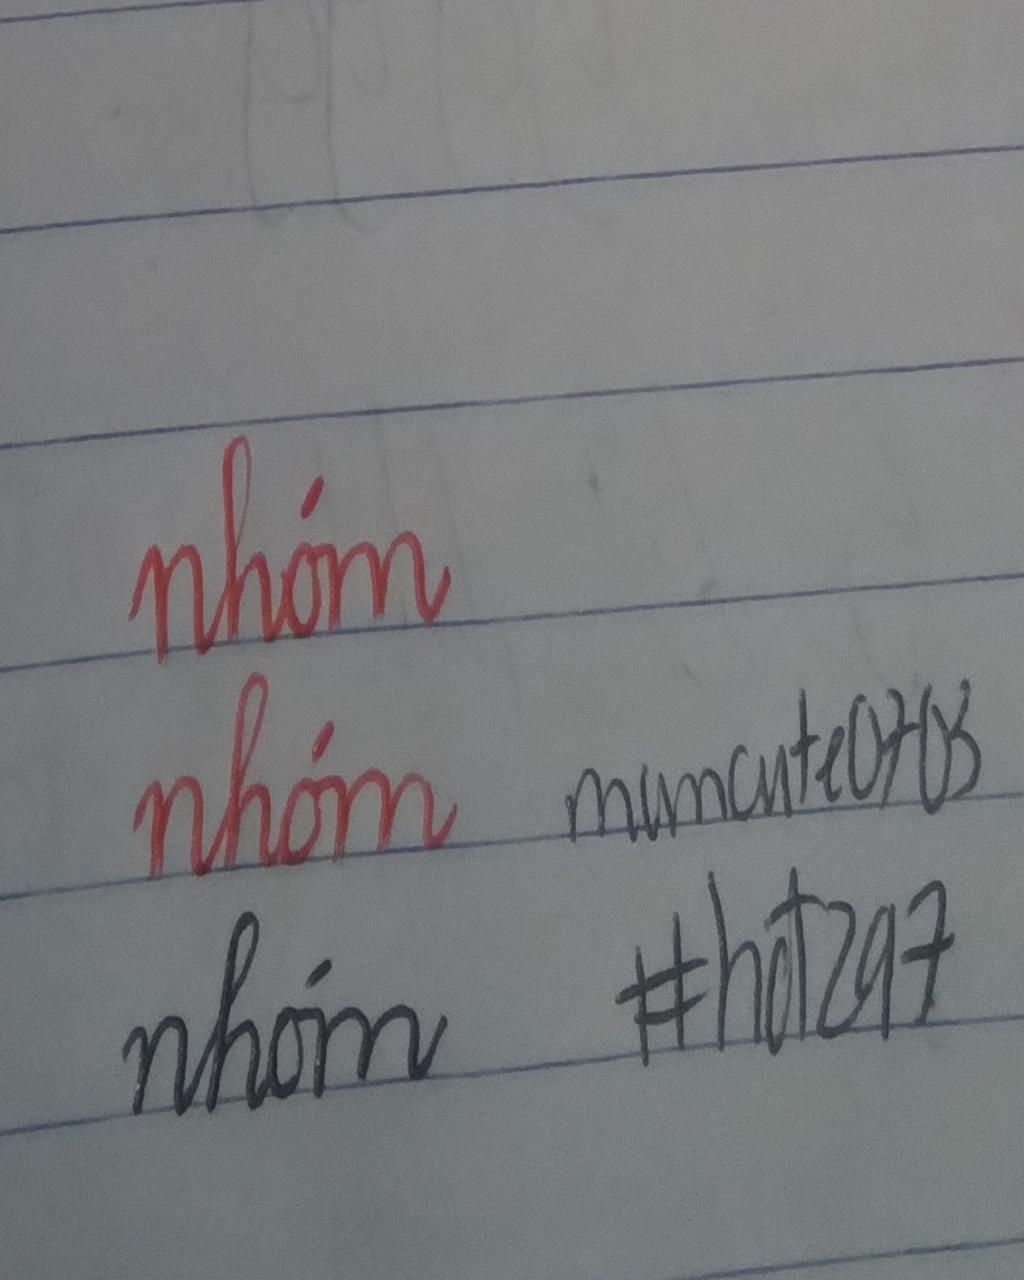 nhóm
nhóm mumcute0703
nhóm #hot297